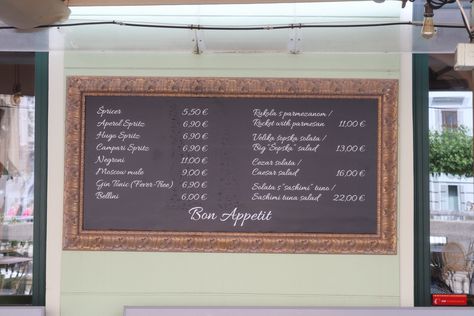 Spricer 5,50 €
Aperol Spritz 6,90 €
Hugo Spritz 6,90 €
Campari Spritz 6,90 €
Negroni 11,00 €
Moscow mule 9,00 €
Gin Tonic (Fever-Tree) 6,90 €
Bellini 6,00 €
Rukola s parmezanom /
Rocket with parmesan 11,00 €
Velika šopska solata /
Big "Šopska" salad 13,00 €
Cezar solata /
Caesar salad 16,00 €
Solata s "sashimi" tuno /
Sashimi tuna salad 22,00 €
Bon Appetit